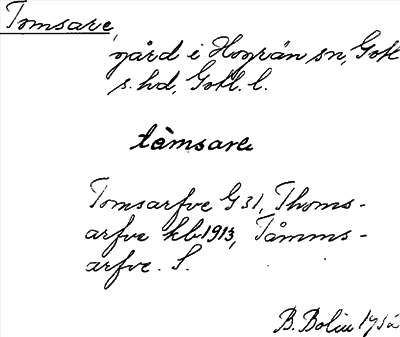 Tomsare,
gård i Hogrän sn, Gotl
s. hd, Gotl. l.
tòmsare
Tomsarfve G 31, Thoms-
arfve kb 1913, Tåmms-
arfve. S.
B. Bolin